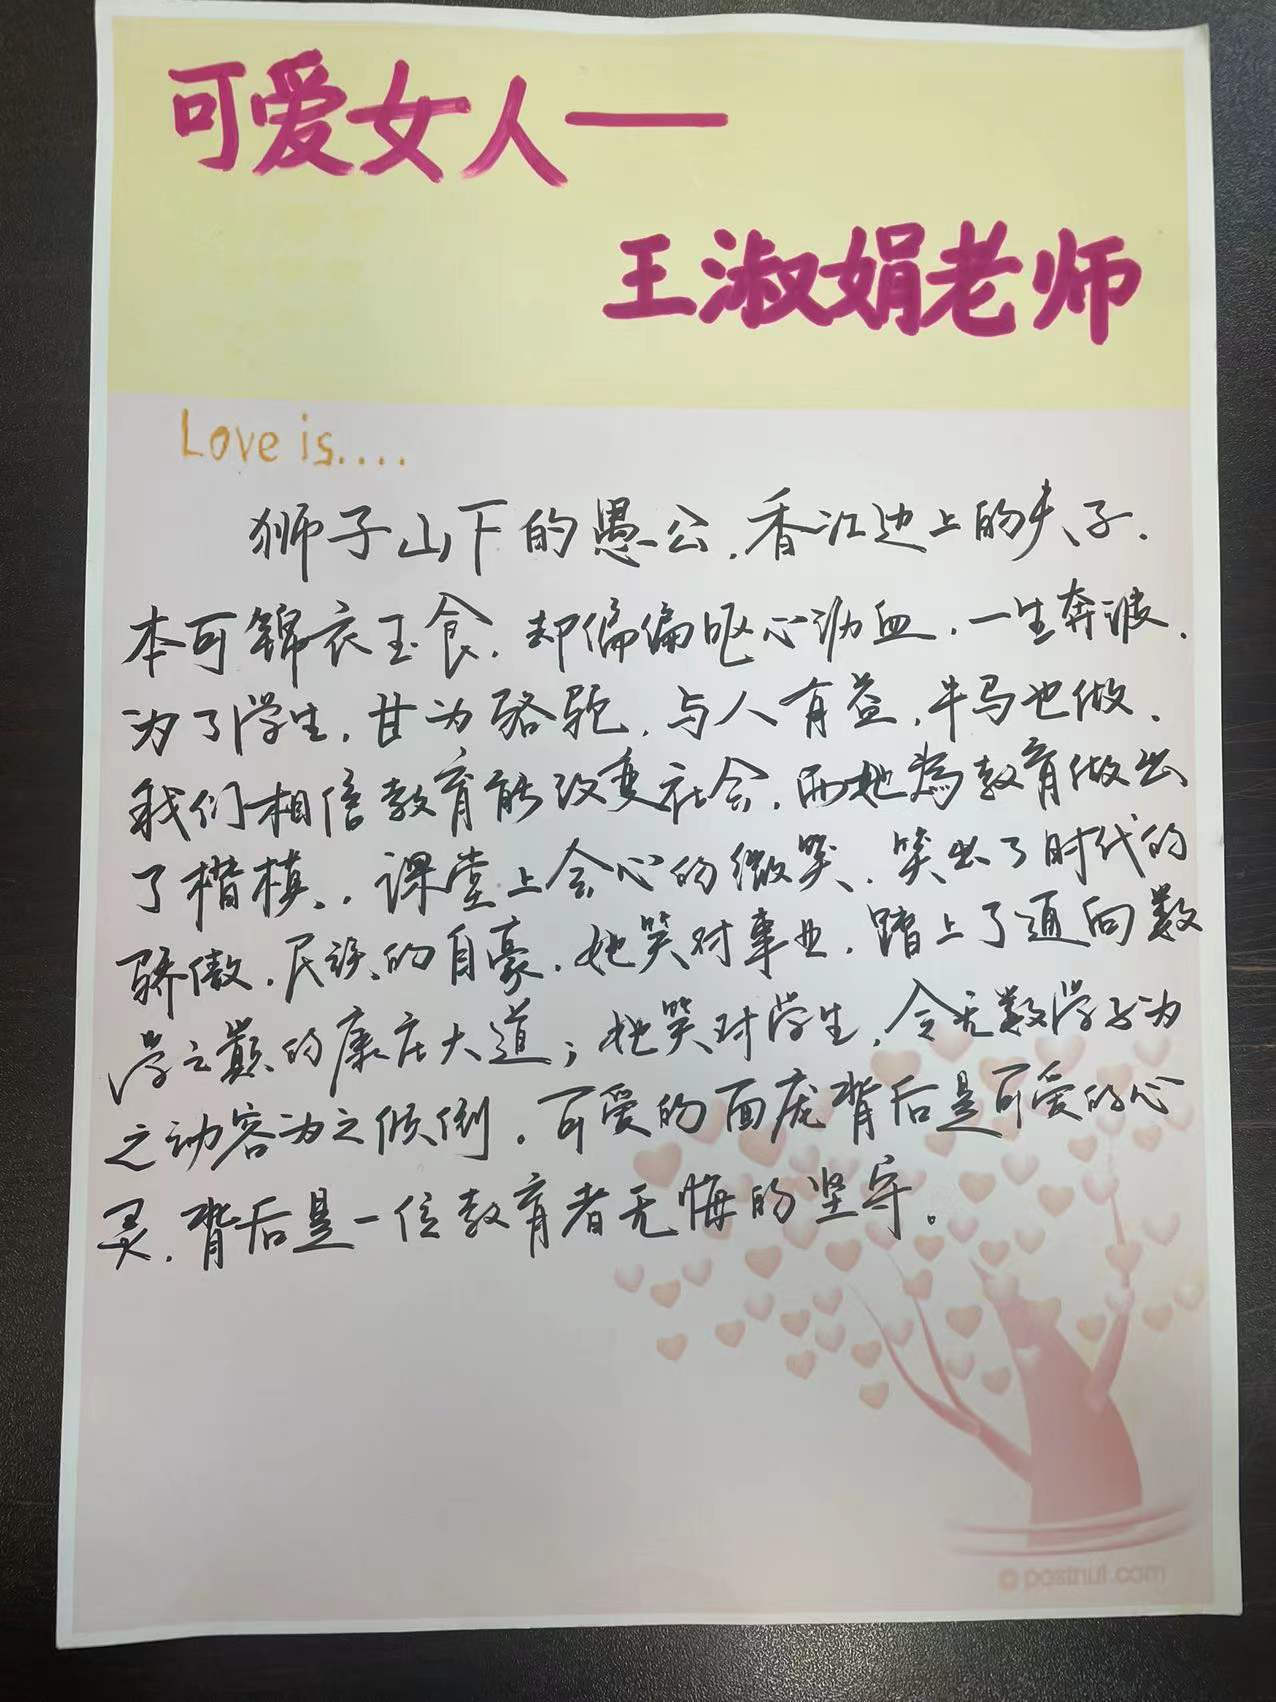 可爱女人——
王淑娟老师
Love is....
狮子山下的愚公，香江边上的夫子，
本可锦衣玉食，却偏偏呕心沥血，一生奔波，
为了学生，甘为骆驼，与人有益，牛马也做，
我们相信教育能改变社会，而她為教育做出
了楷模，课堂上会心的微笑，笑出了时代的
骄傲，民族的自豪，她笑对事业，踏上了通向数
学之巅的康庄大道；她笑对学生，令无数学子为
之动容为之倾倒。可爱的面庞背后是可爱的心
灵，背后是一位教育者无悔的坚守。
© postnut.com